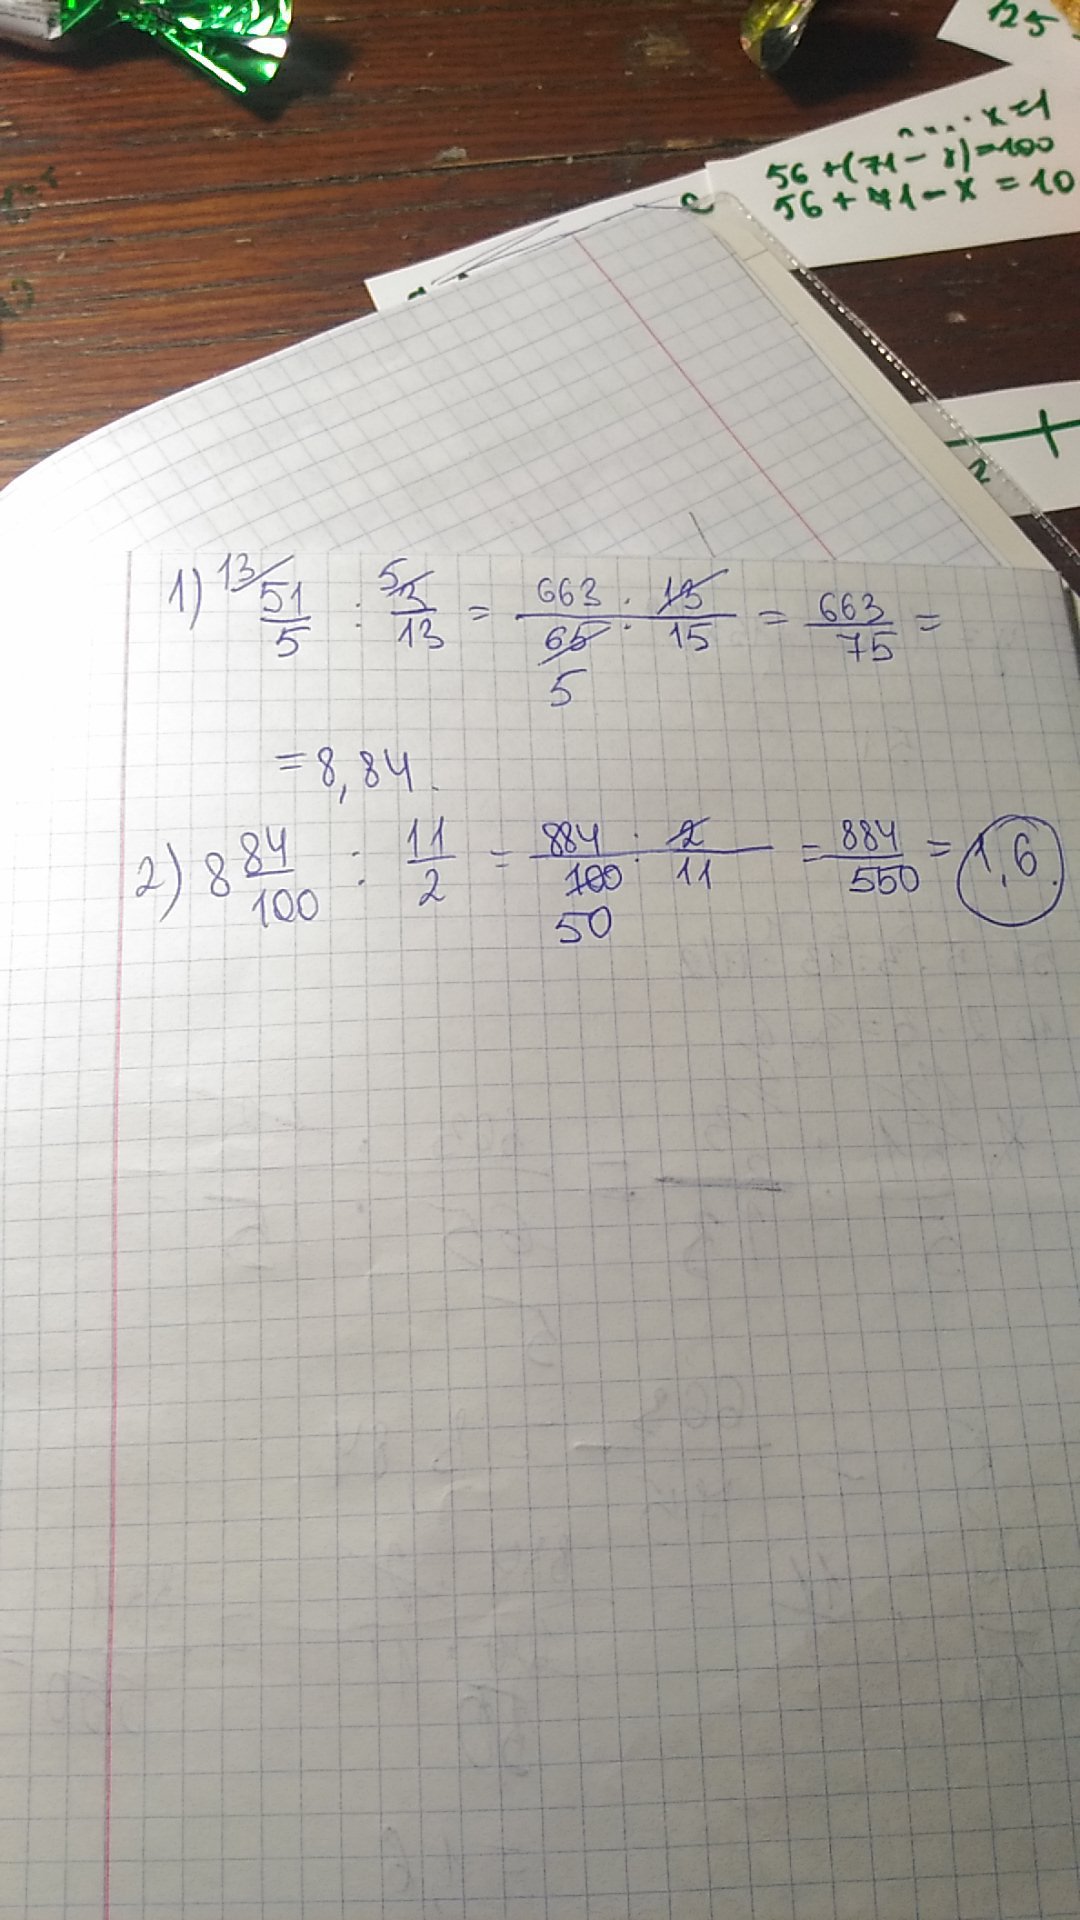 125
x=1
56+(71-x)=100
56+71-x=10
2
1) 13/ 51/5 : 5/ 3/13 = 663·13/65·15 = 663/75 =
5
=8,84.
2) 8 84/100 : 11/2 = 884·2/100·11 = 884/550 = 1,6.
50